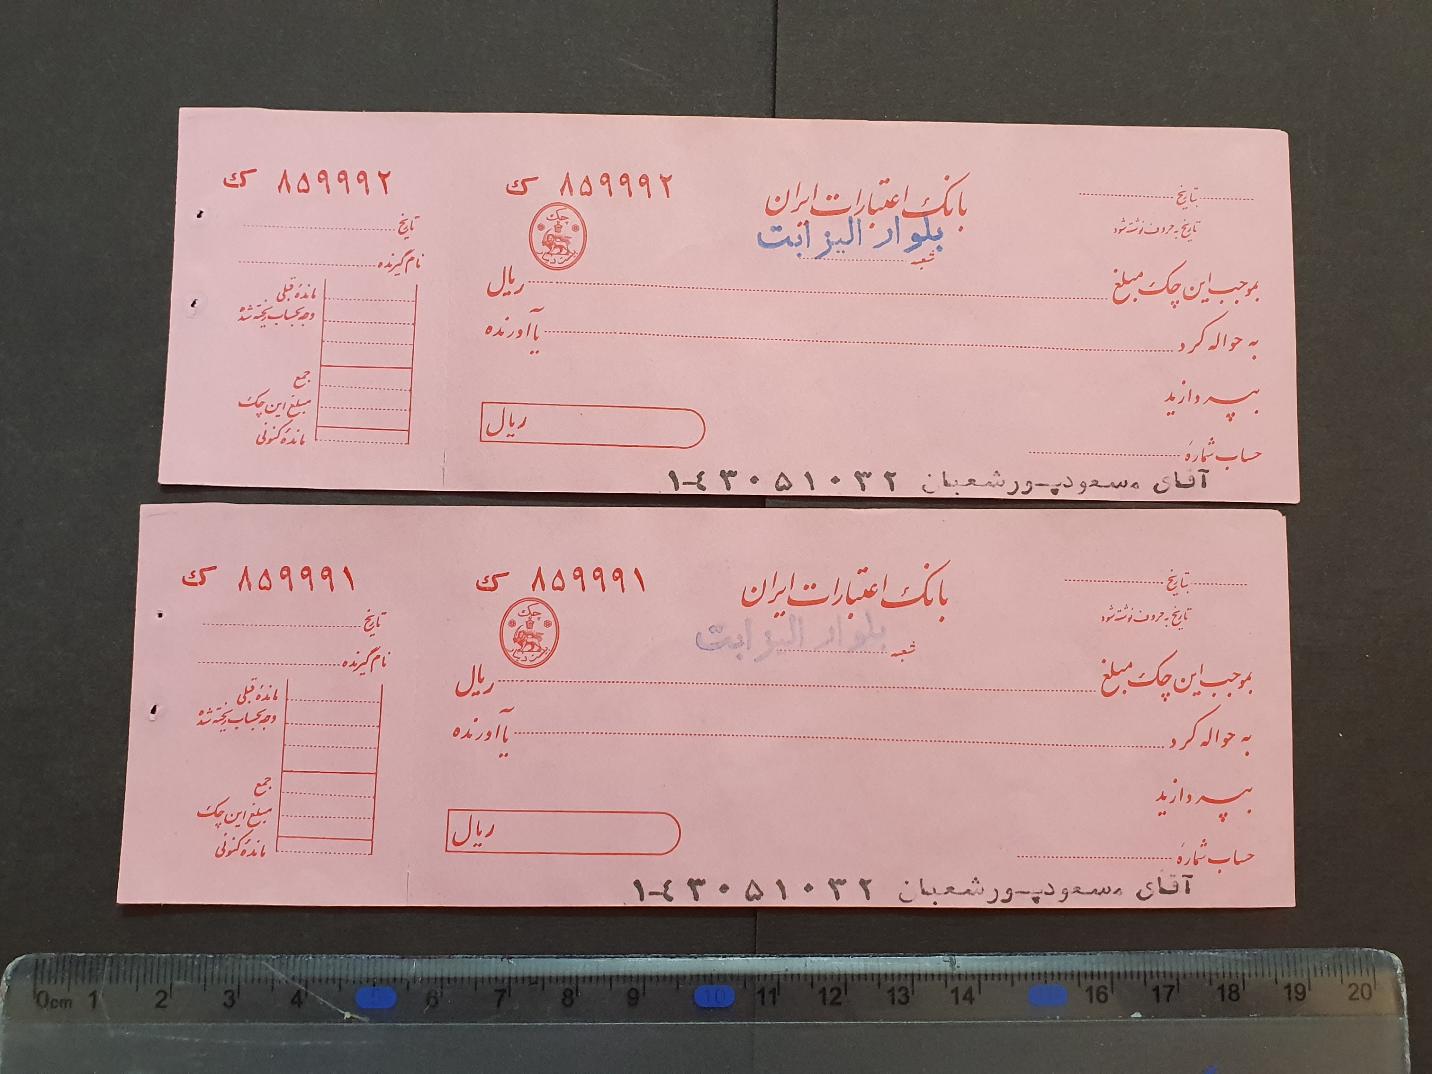 ک ۸۵۹۹۹۲
تاریخ
نام گیرنده
مانده قبلی
وجه بحساب ریخته شده
جمع
مبلغ این چک
مانده کنونی
ک ۸۵۹۹۹۲
چک
بانک اعتبارات ایران
بلوار الیزابت
شعبه
بتاریخ
تاریخ به حروف نوشته شود
بموجب این چک مبلغ ریال
به حواله کرد یا آورنده
بپردازید
ریال
حساب شماره
آقای مسعودپورشعبان ۱-۴۳۰۵۱۰۳۲
ک ۸۵۹۹۹۱
تاریخ
نام گیرنده
مانده قبلی
وجه بحساب ریخته شده
جمع
مبلغ این چک
مانده کنونی
ک ۸۵۹۹۹۱
چک
بانک اعتبارات ایران
بلوار الیزابت
شعبه
بتاریخ
تاریخ به حروف نوشته شود
بموجب این چک مبلغ ریال
به حواله کرد یا آورنده
بپردازید
ریال
حساب شماره
آقای مسعودپورشعبان ۱-۴۳۰۵۱۰۳۲
0cm 1 2 3 4 5 6 7 8 9 10 11 12 13 14 15 16 17 18 19 20